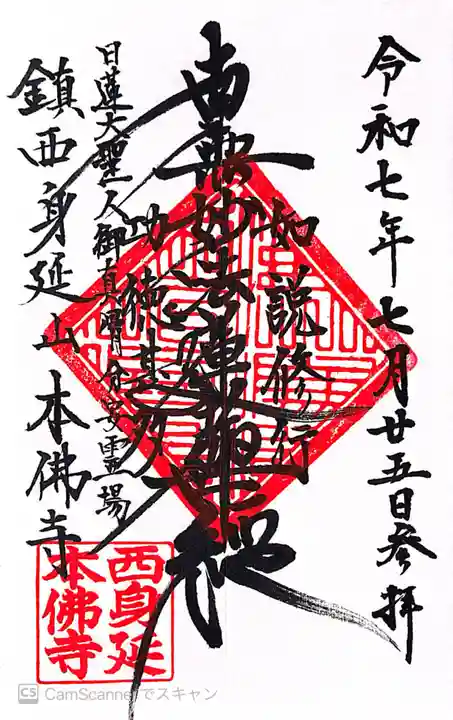 令和七年七月廿五日参拝
如説修行
南無妙法蓮華経
功徳甚多
日蓮大聖人御真骨分安霊場
鎮西身延山本佛寺
西身延
本佛寺
CS CamScannerでスキャン